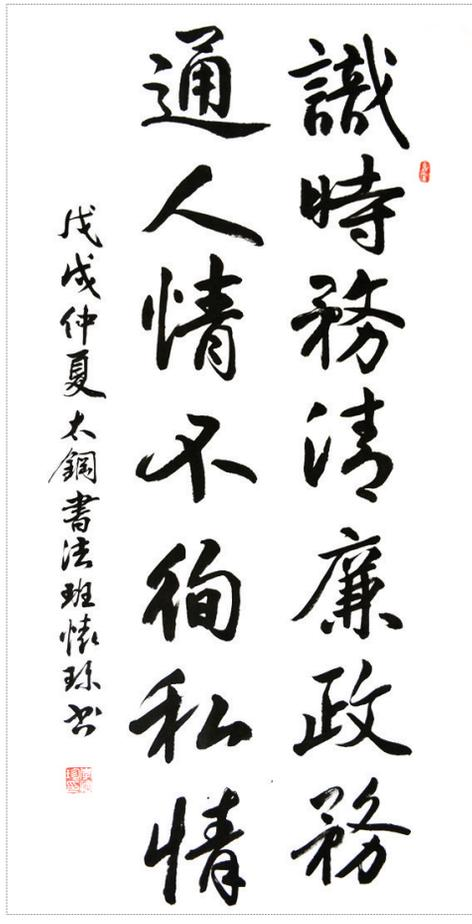 識時務清廉政務
通人情不徇私情
戊戌仲夏太鋼書法班懷珎书